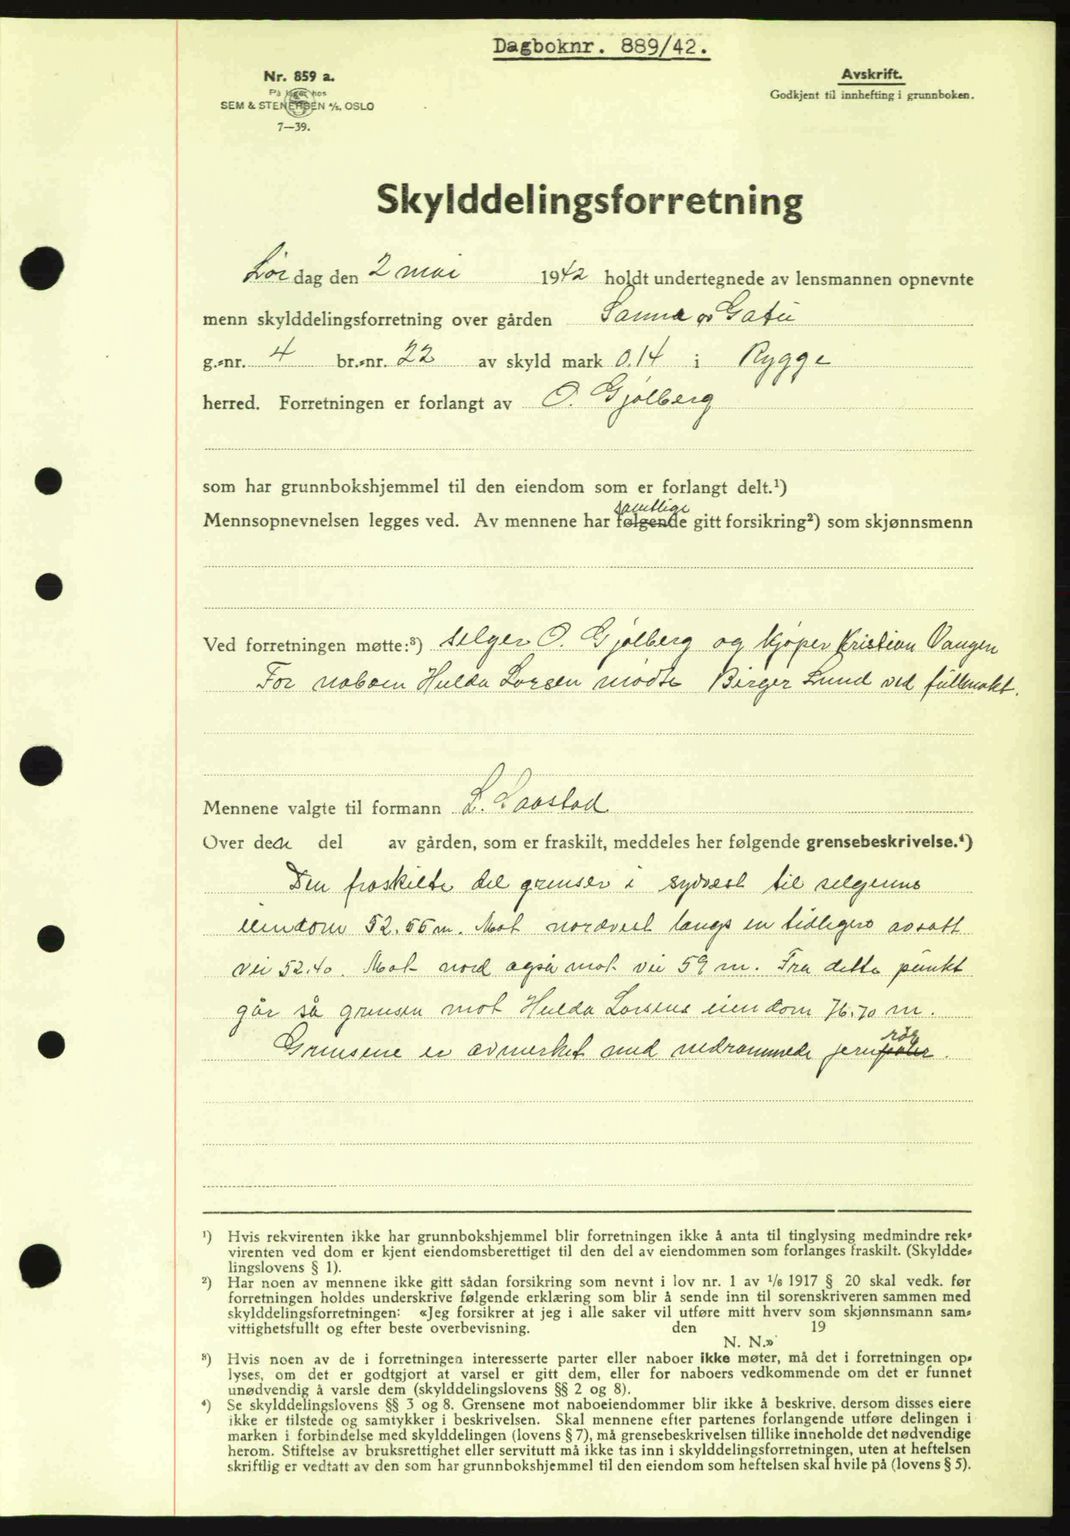 Dagboknr. 889/42.
Nr. 859 a.
På lager hos
SEM & STENERSEN A/S. OSLO
7—39.
Avskrift.
Godkjent til innhefting i grunnboken.
Skylddelingsforretning
Lørdag den 2 mai 1942 holdt undertegnede av lensmannen opnevnte
menn skylddelingsforretning over gården Sanne
g.-nr. 4 br.-nr. 22 av skyld mark 0.14 i Rygge
herred. Forretningen er forlangt av O. Gjølberg
som har grunnbokshjemmel til den eiendom som er forlangt delt.¹)
samtlige
Mennsopnevnelsen legges ved. Av mennene har følgende gitt forsikring²) som skjønnsmenn
Ved forretningen møtte:³) selger O. Gjølberg og kjøper Kristian Vangen
For naboen Hulda Larsen møtte Birger Lund ved fullmakt.
Mennene valgte til formann L.
Over den del av gården, som er fraskilt, meddeles her følgende grensebeskrivelse.⁴)
Den fraskilte del grenser i sydvest til selgerens
eiendom 52.55 m. Mot nordvest langs en tidligere avsatt
vei 52.40. Mot nord også mot vei 59 m. Fra dette punkt
går så grensen mot Hulda Larsens eiendom 76.70 m.
rør
Grensene er avmerket med nedrammede jernpæler.
¹) Hvis rekvirenten ikke har grunnbokshjemmel blir forretningen ikke å anta til tinglysing medmindre rek-
virenten ved dom er kjent eiendomsberettiget til den del av eiendommen som forlanges fraskilt. (Skyldde-
lingslovens § 1).
²) Har noen av mennene ikke gitt sådan forsikring som nevnt i lov nr. 1 av 1/6 1917 § 20 skal vedk. før
forretningen holdes underskrive følgende erklæring som blir å sende inn til sorenskriveren sammen med
skylddelingsforretningen: «Jeg forsikrer at jeg i alle saker vil utføre mitt hverv som skjønnsmann sam-
vittighetsfullt og efter beste overbevisning. den 19
N. N.»
³) Hvis noen av de i forretningen interesserte parter eller naboer ikke møter, må det i forretningen op-
lyses, om det er godtgjort at varsel er gitt dem, eller for naboers vedkommende om det er funnet
unødvendig å varsle dem (skylddelingslovens §§ 2 og 8).
⁴) Se skylddelingslovens §§ 3 og 8. Grensene mot naboeiendommer blir ikke å beskrive, dersom disses eiere
ikke er tilstede og samtykker i beskrivelsen. Skal mennene efter partenes forlangende utføre delingen i
marken i forbindelse med skylddelingen (lovens § 7), må grensebeskrivelsen tillike inneholde det nødvendige
herom. Stiftelse av bruksrettighet eller servitutt må ikke tas inn i skylddelingsforretningen, uten at heftelsen
skriftlig er vedtatt av den som har grunnbokshjemmel til den eiendom som heftelsen skal hvile på (lovens § 5).